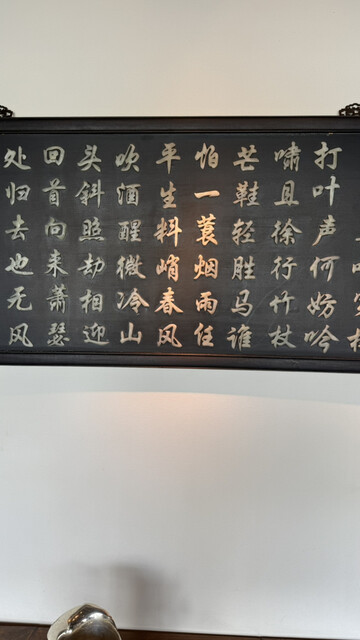 打叶声何妨吟
啸且徐行竹杖
芒鞋轻胜马谁
怕一蓑烟雨任
平生料峭春风
吹酒醒微冷山
头斜照劫相迎
回首向来萧瑟
处归去也无风